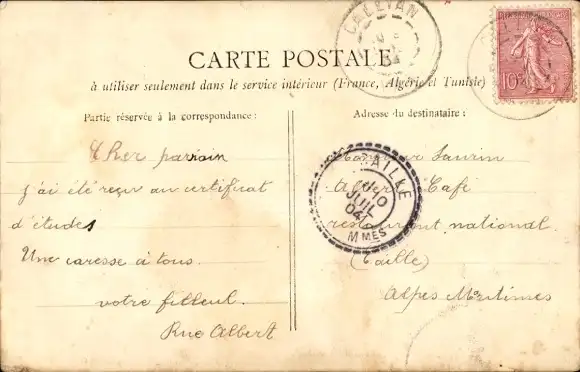 CALLIAN
10c
CARTE POSTALE
à utiliser seulement dans le service intérieur (France, Algérie et Tunisie)
Partie réservée à la correspondance :
Cher parrain
J'ai été reçu au certificat
d'études
Une caresse à tous.
votre filleul.
Rue Albert
Adresse du destinataire :
Monsieur Saurin
Café
restaurant national.
(Caille)
Alpes Maritimes
CAILLE
10
JUIL
04
MMES